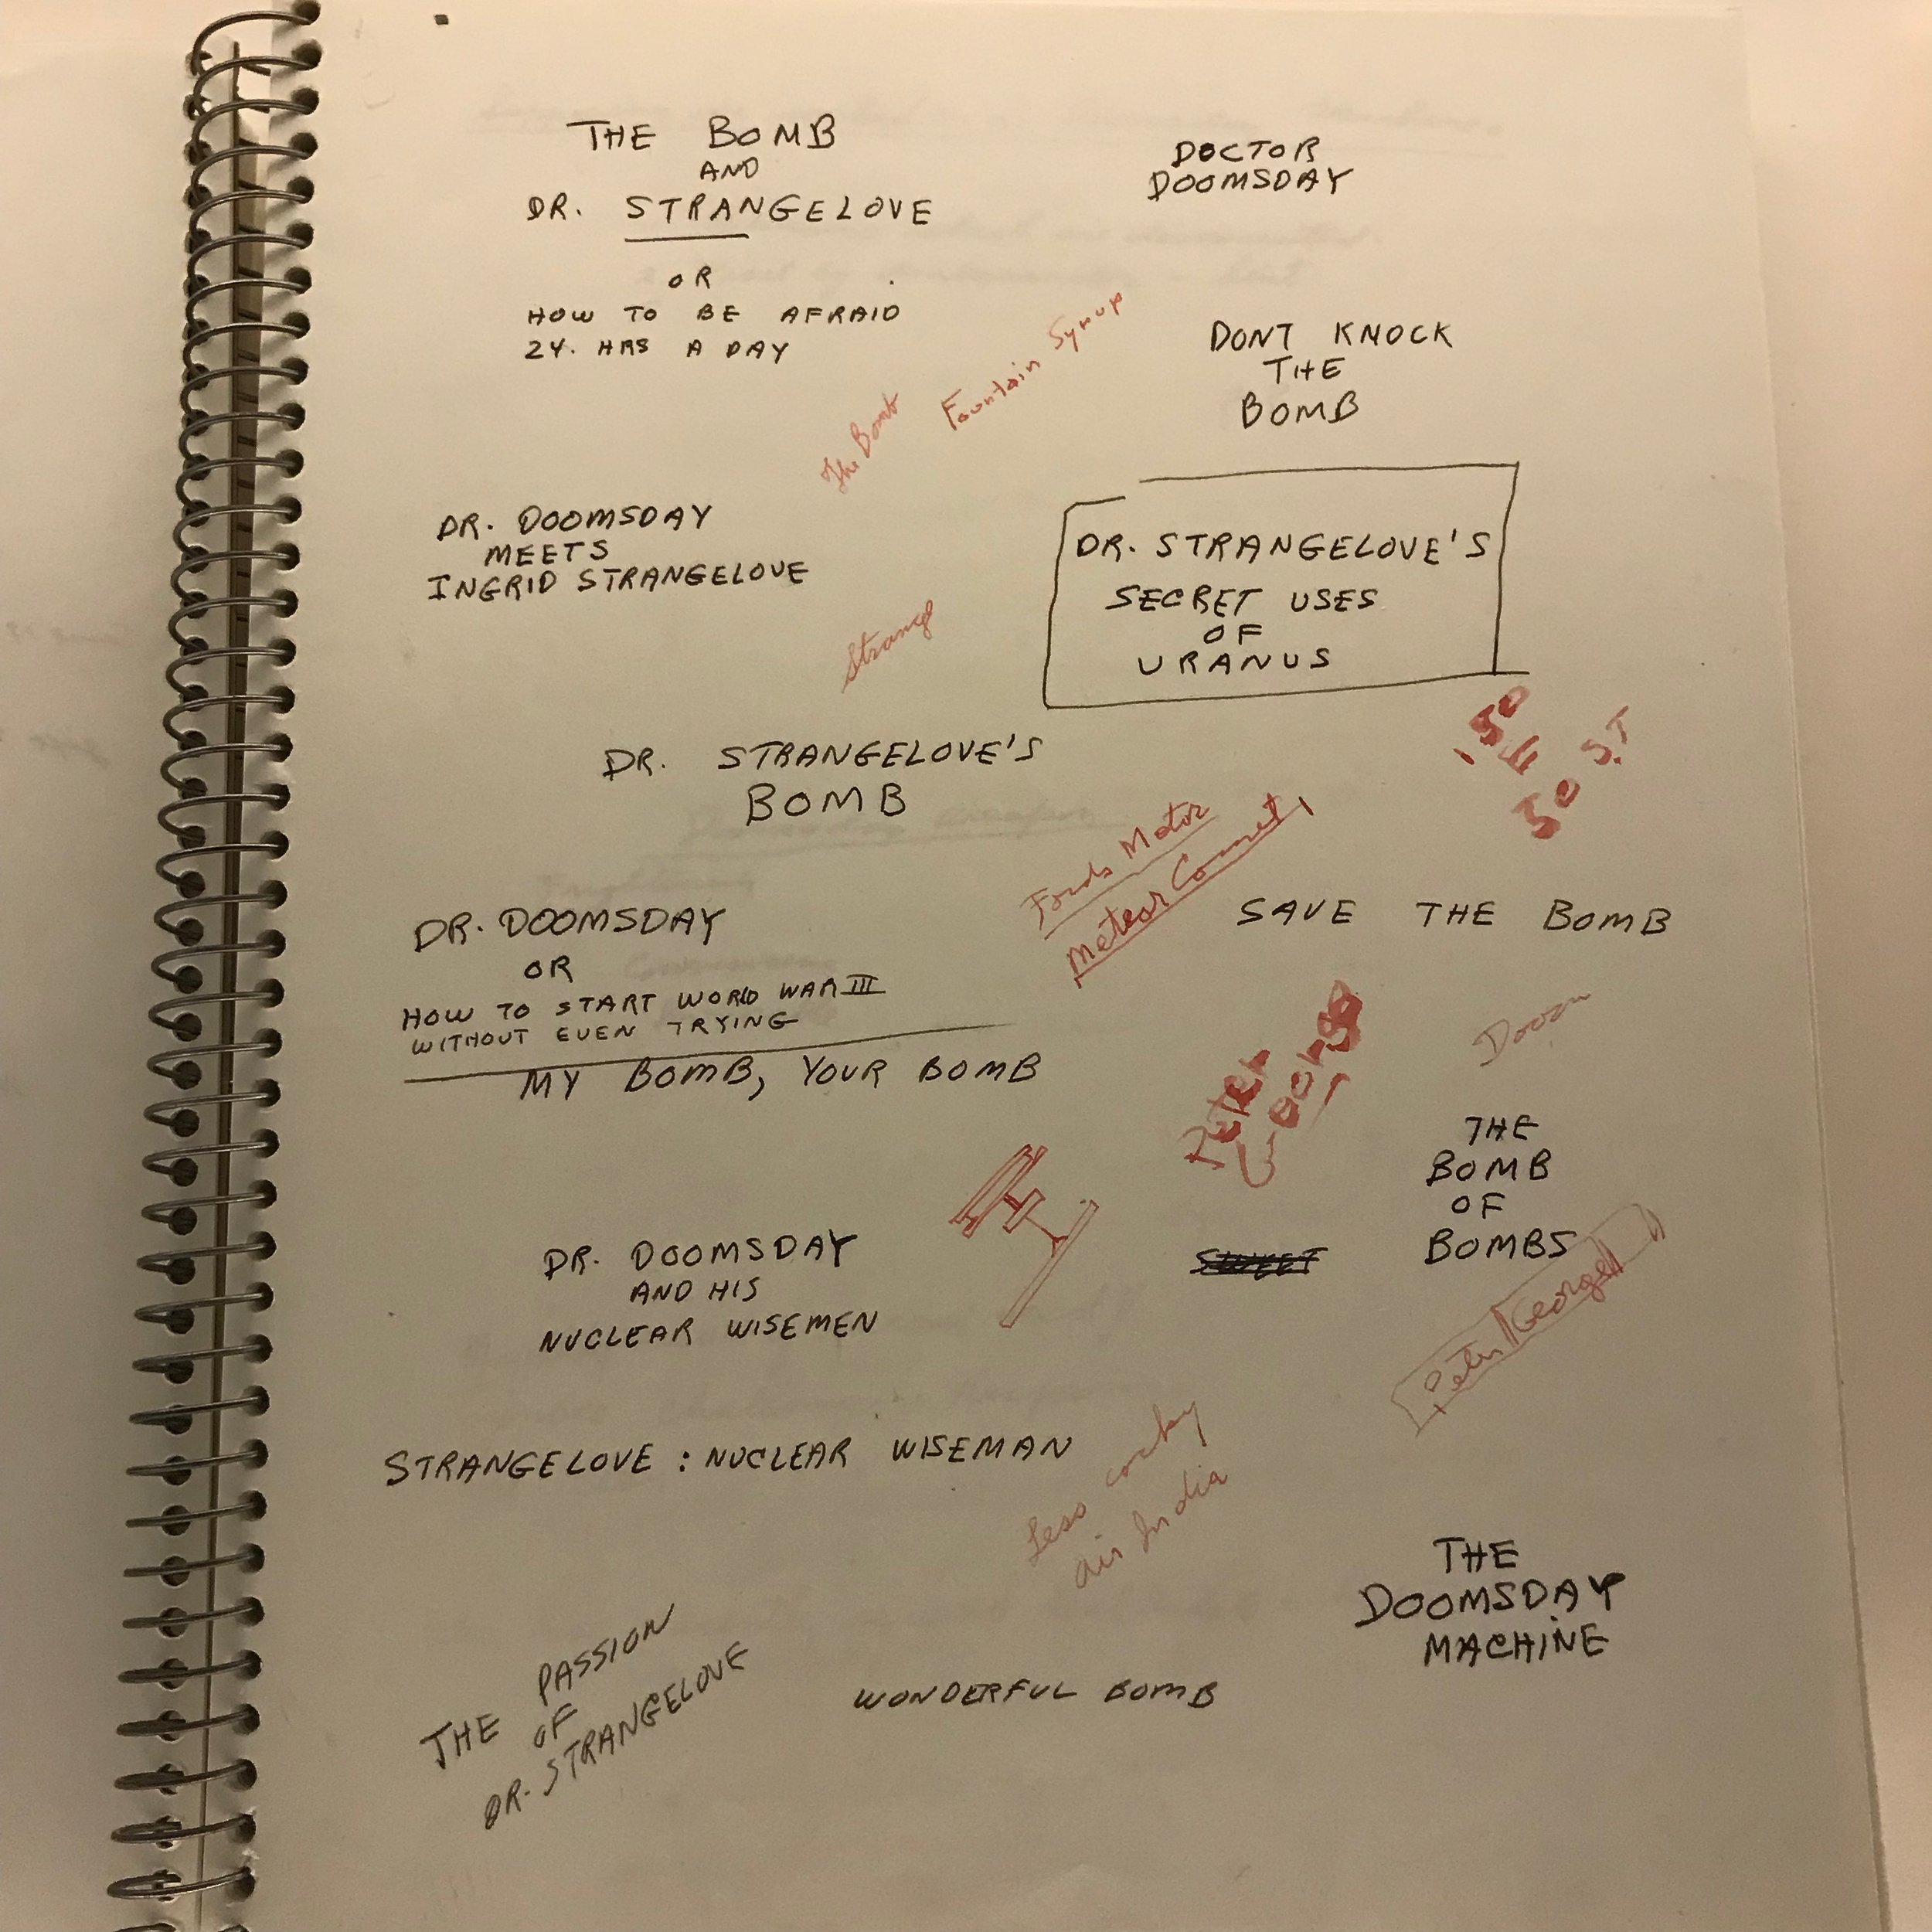 THE BOMB
AND
DR. STRANGELOVE
OR
HOW TO BE AFRAID
24. HRS A DAY
DOCTOR
DOOMSDAY
DONT KNOCK
THE
BOMB
The Bomb
Fountain Syrup
DR. DOOMSDAY
MEETS
INGRID STRANGELOVE
DR. STRANGELOVE'S
SECRET USES
OF
URANUS
Strangl
DR. STRANGELOVE'S
BOMB
150
E
50 S.T
Fords Motor
Meteor Comet
SAVE THE BOMB
DR. DOOMSDAY
OR
HOW TO START WORLD WAR III
WITHOUT EVEN TRYING
MY BOMB, YOUR BOMB
Doom
Peter
George
THE
BOMB
OF
BOMBS
SWEET
DR. DOOMSDAY
AND HIS
NUCLEAR WISEMEN
Peter George
STRANGELOVE : NUCLEAR WISEMAN
Less corky
air India
THE
DOOMSDAY
MACHINE
THE PASSION
OF
DR. STRANGELOVE
WONDERFUL BOMB